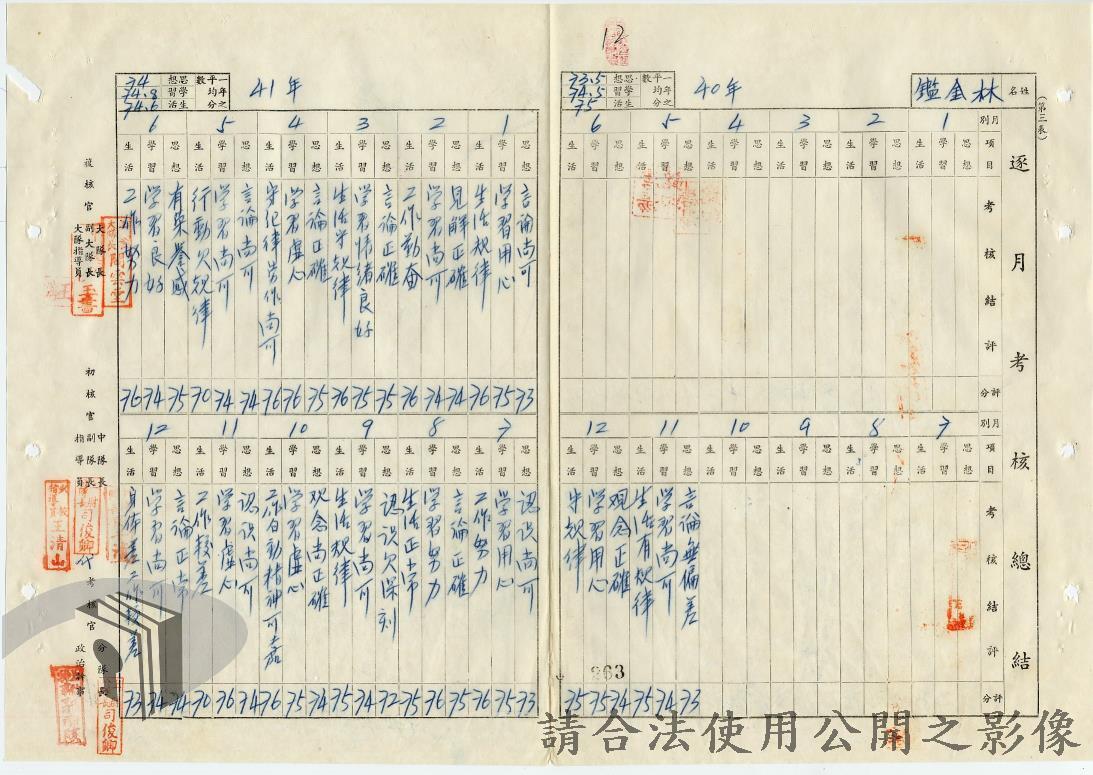 12
(第三表)
逐月考核總結
姓名 林金鑑
40年
一年之平均分數
思想 73.5
學習 74.5
生活 75
月別 1 2 3 4 5 6
項目 思想 學習 生活 思想 學習 生活 思想 學習 生活 思想 學習 生活 思想 學習 生活 思想 學習 生活
考核結評
評分
月別 7 8 9 10 11 12
項目 思想 學習 生活 思想 學習 生活 思想 學習 生活 思想 學習 生活 思想 學習 生活 思想 學習 生活
考核結評
言論無偏差
學習尚可
生活有規律
觀念正確
學習用心
守規律
評分 73 74 75 74 75 75
263
41年
一年之平均分數
思想 74
學習 74.8
生活 74.6
1 2 3 4 5 6
思想 學習 生活 思想 學習 生活 思想 學習 生活 思想 學習 生活 思想 學習 生活 思想 學習 生活
言論尚可
學習用心
生活規律
見解正確
學習尚可
工作勤奮
言論正確
學習情緒良好
生活守規律
言論正確
學習虛心
守紀律勞作尚可
言論尚可
學習尚可
行動欠規律
有榮譽感
學習良好
工作努力
73 75 76 74 74 76 75 75 76 75 76 76 74 74 70 75 74 76
7 8 9 10 11 12
思想 學習 生活 思想 學習 生活 思想 學習 生活 思想 學習 生活 思想 學習 生活 思想 學習 生活
認識尚可
學習用心
工作努力
言論正確
學習努力
生活正常
認識欠深刻
學習尚可
生活規律
观念尚正確
學習虛心
工作自動精神可嘉
認識尚可
學習虛心
工作較差
言論正常
學習尚可
身体差工作較差
73 75 76 75 76 75 72 74 75 74 75 76 74 76 70 74 74 73
複核官 大隊長 副大隊長 大隊指導員
初核官 中隊長 副隊長 指導員
王清山
司俊卿
代
考核官 分隊長 政治幹事
司俊卿
請合法使用公開之影像